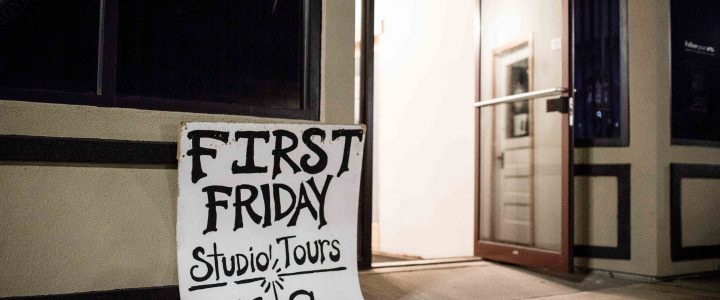 FIRST
FRIDAY
STUDIO TOURS
Follow your arts.